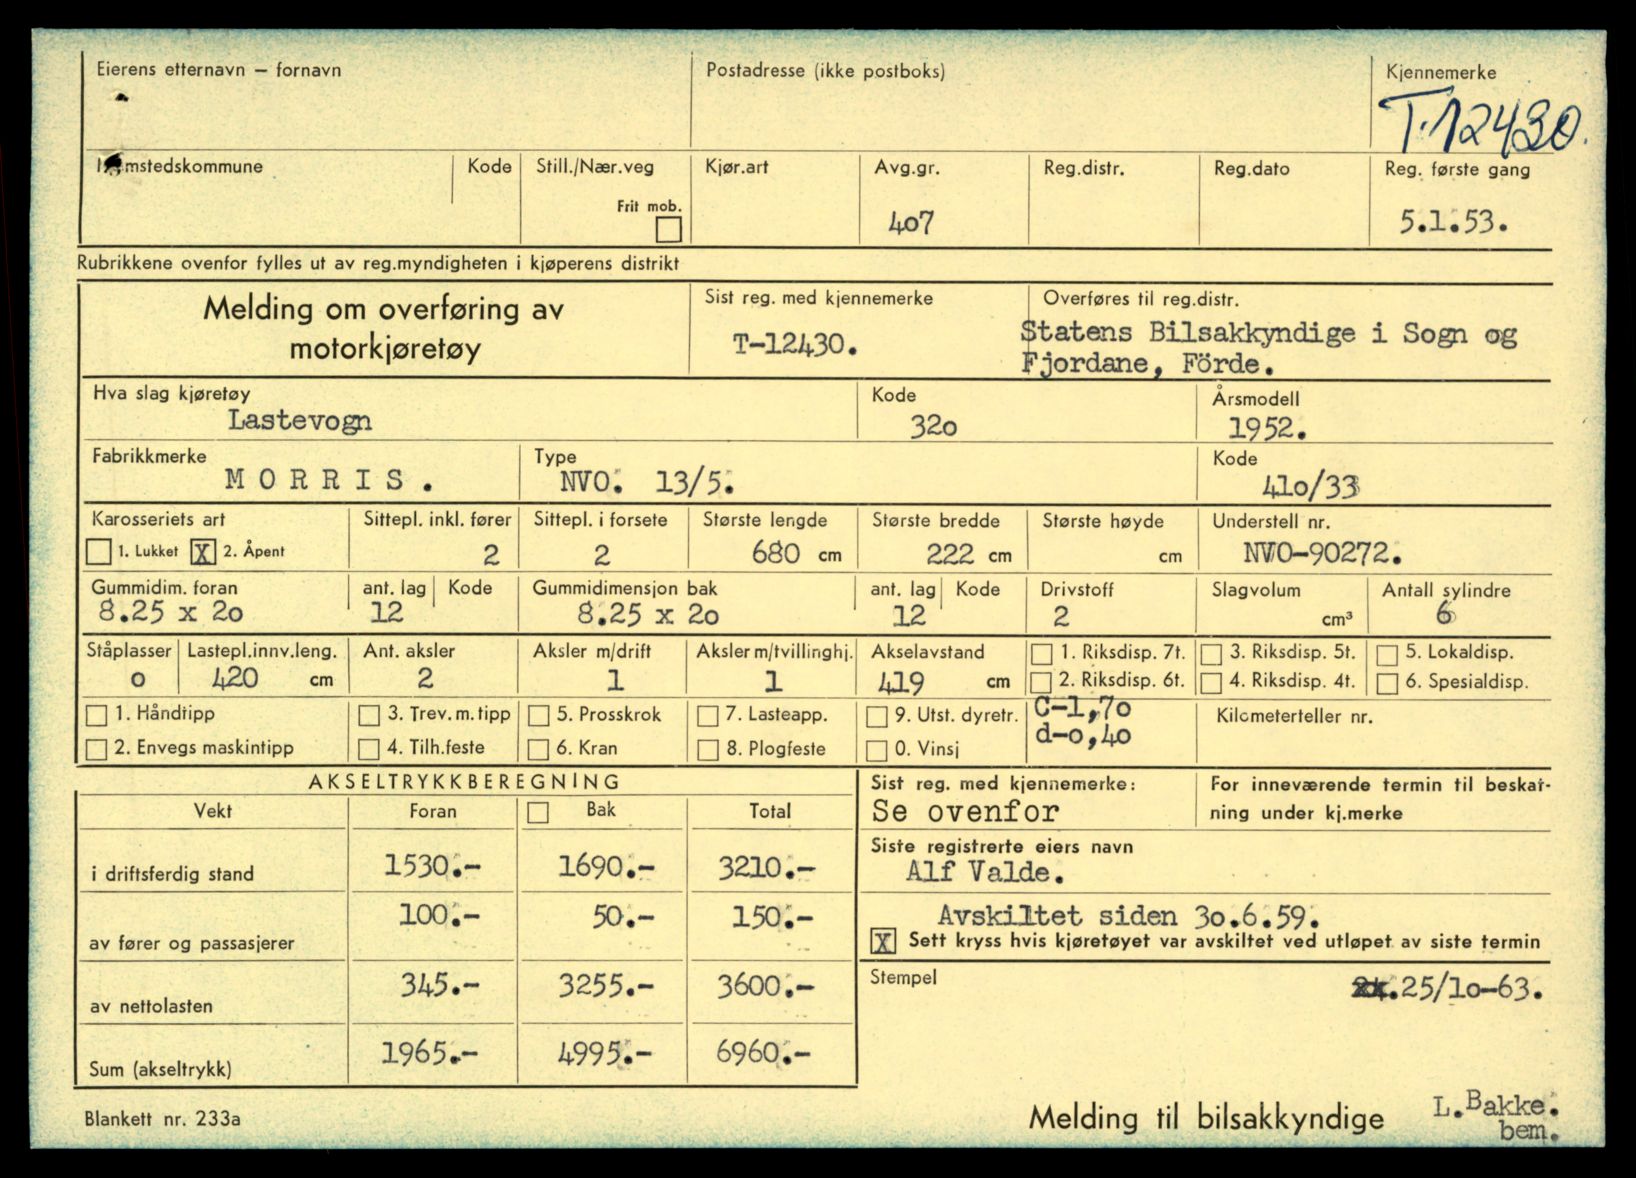 Eierens etternavn – fornavn
Postadresse (ikke postboks)
Kjennemerke
T-12430.
mstedskommune
Kode
Still./Nær.veg
Frit mob.
Kjør.art
Avg.gr.
407
Reg.distr.
Reg.dato
Reg. første gang
5.1.53.
Rubrikkene ovenfor fylles ut av reg.myndigheten i kjøperens distrikt
Melding om overføring av
motorkjøretøy
Sist reg. med kjennemerke
T-12430.
Overføres til reg.distr.
Statens Bilsakkyndige i Sogn og
Fjordane, Förde.
Hva slag kjøretøy
Lastevogn
Kode
320
Årsmodell
1952.
Fabrikkmerke
MORRIS.
Type
NVO. 13/5.
Kode
410/33
Karosseriets art
1. Lukket X 2. Åpent
Sittepl. inkl. fører
2
Sittepl. i forsete
2
Største lengde
680 cm
Største bredde
222 cm
Største høyde
cm
Understell nr.
NVO-90272.
Gummidim. foran
8.25 x 20
ant. lag
12
Kode
Gummidimensjon bak
8.25 x 20
ant. lag
12
Kode
Drivstoff
2
Slagvolum
cm³
Antall sylindre
6
Ståplasser
0
Lastepl.innv.leng.
420 cm
Ant. aksler
2
Aksler m/drift
1
Aksler m/tvillinghj.
1
Akselavstand
419 cm
1. Riksdisp. 7t.
2. Riksdisp. 6t.
3. Riksdisp. 5t.
4. Riksdisp. 4t.
5. Lokaldisp.
6. Spesialdisp.
1. Håndtipp
2. Envegs maskintipp
3. Trev. m. tipp
4. Tilh.feste
5. Prosskrok
6. Kran
7. Lasteapp.
8. Plogfeste
9. Utst. dyretr.
0. Vinsj
C-1,70
d-0,40
Kilometerteller nr.
AKSELTRYKKBEREGNING
Vekt Foran Bak Total
i driftsferdig stand 1530.- 1690.- 3210.-
av fører og passasjerer 100.- 50.- 150.-
av nettolasten 345.- 3255.- 3600.-
Sum (akseltrykk) 1965.- 4995.- 6960.-
Sist reg. med kjennemerke:
Se ovenfor
For inneværende termin til beskat-
ning under kj.merke
Siste registrerte eiers navn
Alf Valde.
Avskiltet siden 30.6.59.
X Sett kryss hvis kjøretøyet var avskiltet ved utløpet av siste termin
Stempel
25/10-63.
Blankett nr. 233a
Melding til bilsakkyndige
L.Bakke.
bem.